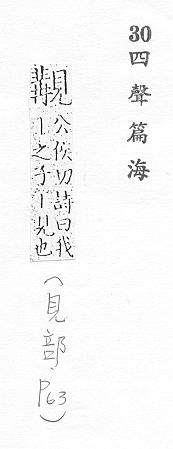 30四聲篇海
覯公候切詩曰我
丨之子丨見也
(見部, P63)